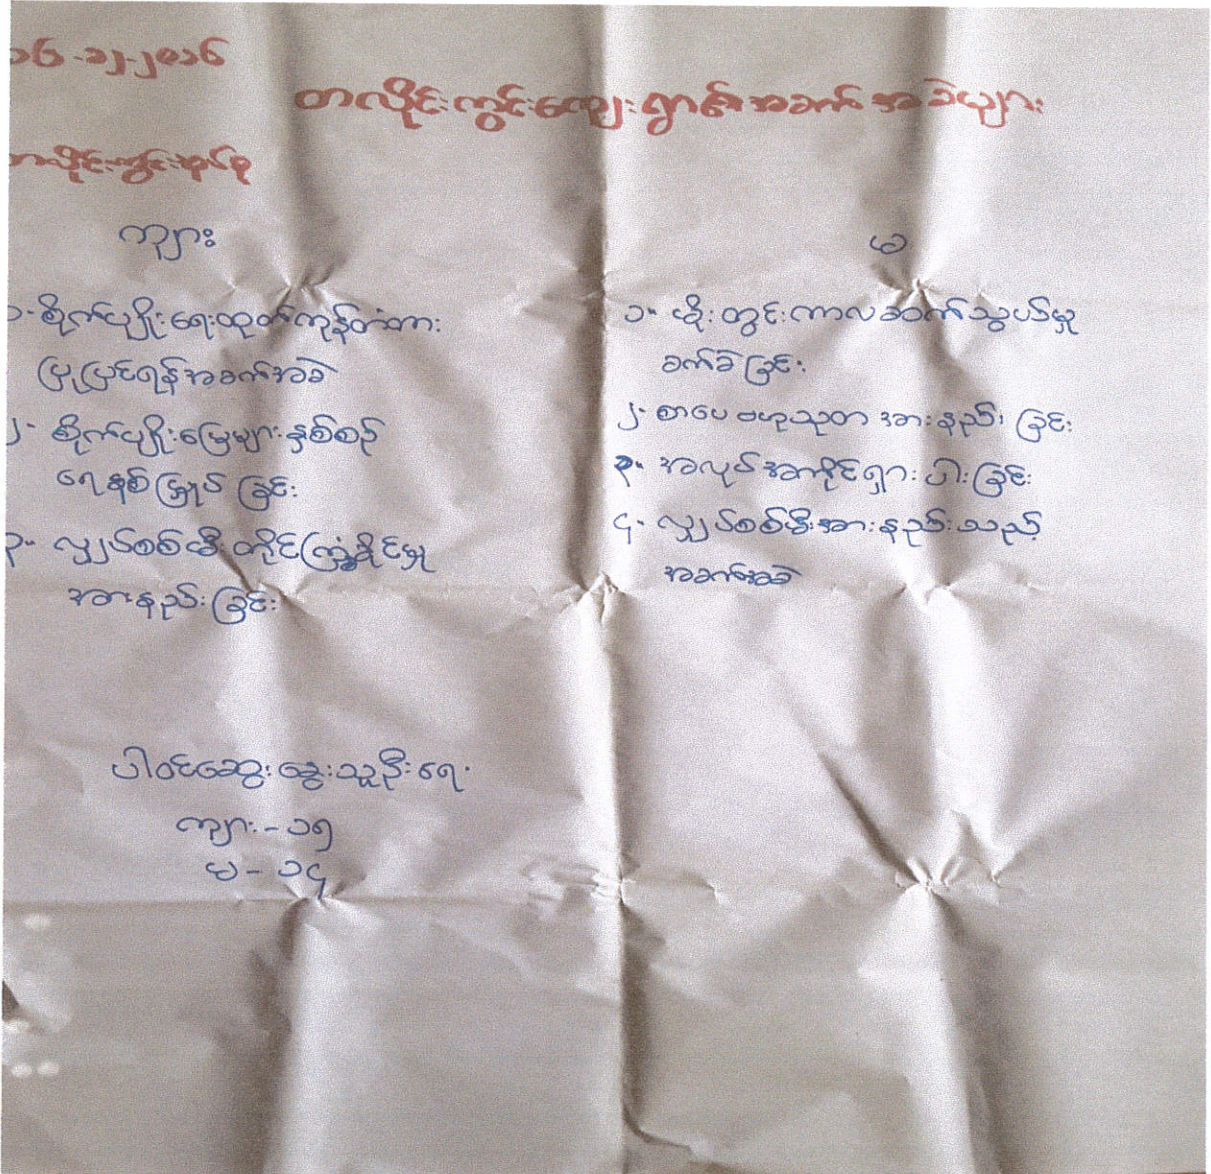 ၁၆-၁၂-၂၀၁၆
တလိုင်းကွင်းကျေးရွာ၏အခက်အခဲများ
တလိုင်းကွင်းအုပ်စု
ကျား
၁- စိုက်ပျိုးရေးထုတ်ကုန်တံတား
ပြုပြင်ရန်အခက်အခဲ
၂- စိုက်ပျိုးမြေများနှစ်စဉ်
ရေနစ်မြှုပ်ခြင်း
၃- လျှပ်စစ်မီး တိုင်ကြံ့ခိုင်မှု
အားနည်းခြင်း
မ
၁- မိုးတွင်းကာလဆက်သွယ်မှု
ခက်ခဲခြင်း
၂- စာပေဗဟုသုတအားနည်းခြင်း
၃- အလုပ်အကိုင်ရှားပါးခြင်း
၄- လျှပ်စစ်မီးအားနည်းသည့်
အခက်အခဲ
ပါဝင်ဆွေးနွေးသူဦးရေ-
ကျား - ၁၅
မ - ၁၄